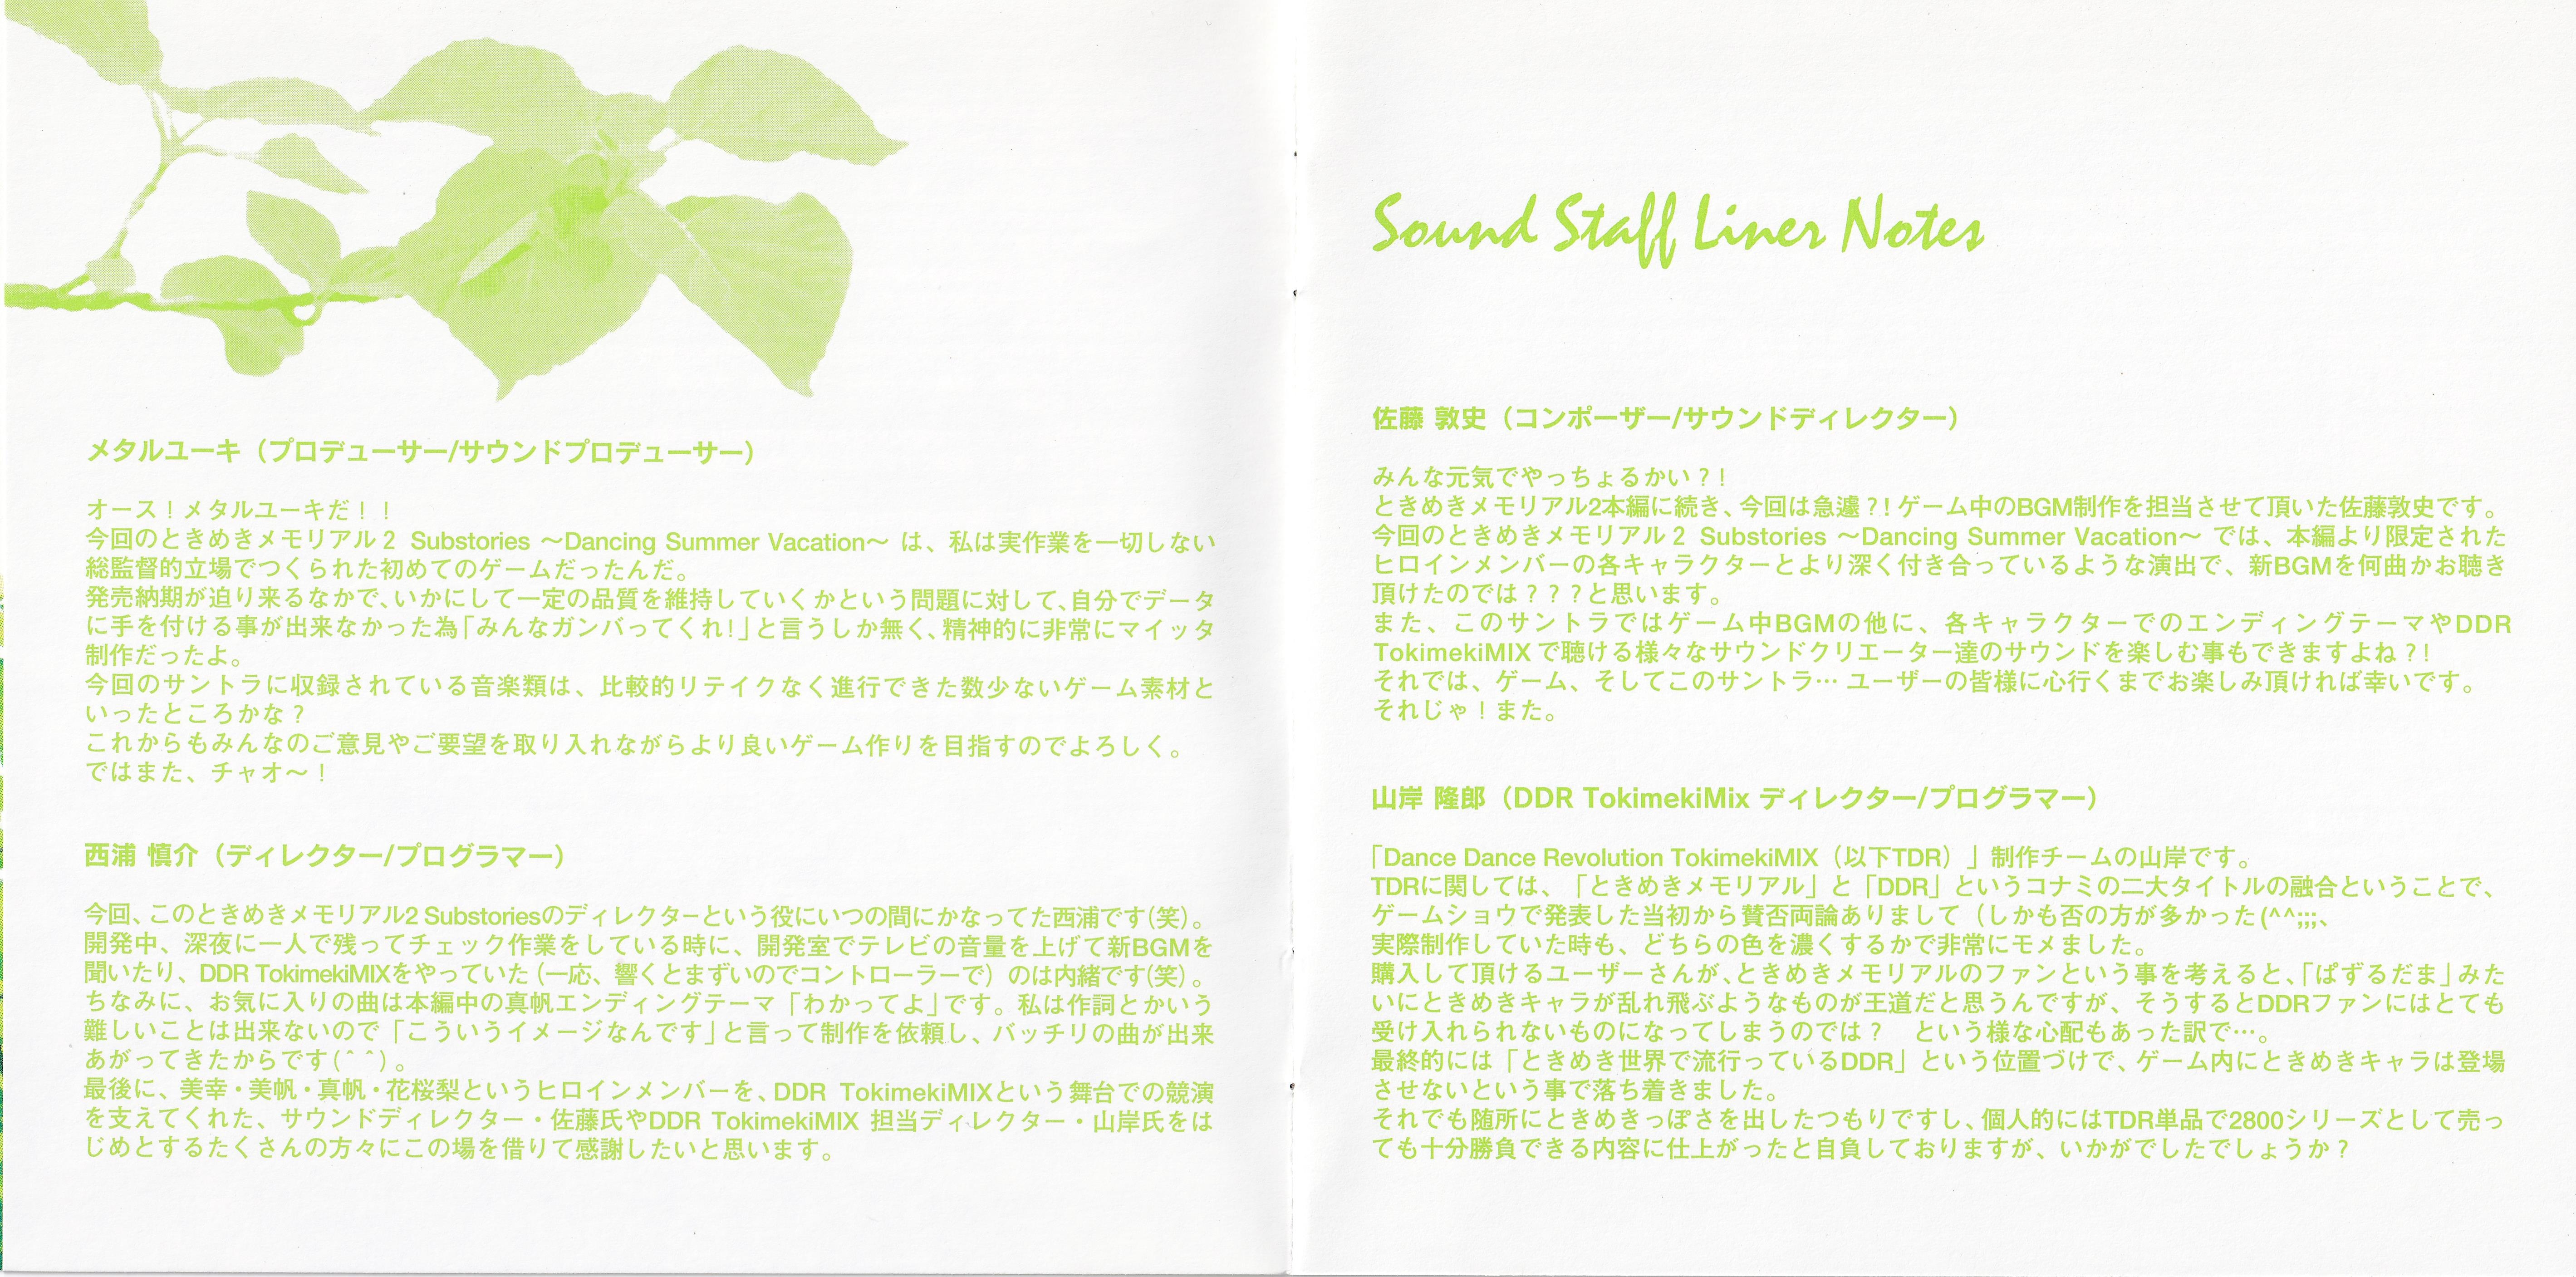 メタルユーキ（プロデューサー/サウンドプロデューサー）
オース！メタルユーキだ！！
今回のときめきメモリアル2 Substories ～Dancing Summer Vacation～ は、私は実作業を一切しない
総監督的立場でつくられた初めてのゲームだったんだ。
発売納期が迫り来るなかで、いかにして一定の品質を維持していくかという問題に対して、自分でデータ
に手を付ける事が出来なかった為「みんなガンバってくれ！」と言うしか無く、精神的に非常にマイッタ
制作だったよ。
今回のサントラに収録されている音楽類は、比較的リテイクなく進行できた数少ないゲーム素材と
いったところかな？
これからもみんなのご意見やご要望を取り入れながらより良いゲーム作りを目指すのでよろしく。
ではまた、チャオ～！
西浦 慎介（ディレクター/プログラマー）
今回、このときめきメモリアル2 Substoriesのディレクターという役にいつの間にかなってた西浦です(笑)。
開発中、深夜に一人で残ってチェック作業をしている時に、開発室でテレビの音量を上げて新BGMを
聞いたり、DDR TokimekiMIXをやっていた（一応、響くとまずいのでコントローラーで）のは内緒です(笑)。
ちなみに、お気に入りの曲は本編中の真帆エンディングテーマ「わかってよ」です。私は作詞とかいう
難しいことは出来ないので「こういうイメージなんです」と言って制作を依頼し、バッチリの曲が出来
あがってきたからです(＾＾)。
最後に、美幸・美帆・真帆・花桜梨というヒロインメンバーを、DDR TokimekiMIXという舞台での競演
を支えてくれた、サウンドディレクター・佐藤氏やDDR TokimekiMIX 担当ディレクター・山岸氏をは
じめとするたくさんの方々にこの場を借りて感謝したいと思います。
Sound Staff Liner Notes
佐藤 敦史（コンポーザー/サウンドディレクター）
みんな元気でやっちょるかい？！
ときめきメモリアル2本編に続き、今回は急遽？！ゲーム中のBGM制作を担当させて頂いた佐藤敦史です。
今回のときめきメモリアル2 Substories ～Dancing Summer Vacation～ では、本編より限定された
ヒロインメンバーの各キャラクターとより深く付き合っているような演出で、新BGMを何曲かお聴き
頂けたのでは？？？と思います。
また、このサントラではゲーム中BGMの他に、各キャラクターでのエンディングテーマやDDR
TokimekiMIXで聴ける様々なサウンドクリエーター達のサウンドを楽しむ事もできますよね？！
それでは、ゲーム、そしてこのサントラ… ユーザーの皆様に心行くまでお楽しみ頂ければ幸いです。
それじゃ！また。
山岸 隆郎（DDR TokimekiMix ディレクター/プログラマー）
「Dance Dance Revolution TokimekiMIX（以下TDR）」制作チームの山岸です。
TDRに関しては、「ときめきメモリアル」と「DDR」というコナミの二大タイトルの融合ということで、
ゲームショウで発表した当初から賛否両論ありまして（しかも否の方が多かった(^^;;;、
実際制作していた時も、どちらの色を濃くするかで非常にモメました。
購入して頂けるユーザーさんが、ときめきメモリアルのファンという事を考えると、「ぱずるだま」みた
いにときめきキャラが乱れ飛ぶようなものが王道だと思うんですが、そうするとDDRファンにはとても
受け入れられないものになってしまうのでは？　という様な心配もあった訳で…。
最終的には「ときめき世界で流行っているDDR」という位置づけで、ゲーム内にときめきキャラは登場
させないという事で落ち着きました。
それでも随所にときめきっぽさを出したつもりですし、個人的にはTDR単品で2800シリーズとして売っ
ても十分勝負できる内容に仕上がったと自負しておりますが、いかがでしたでしょうか？